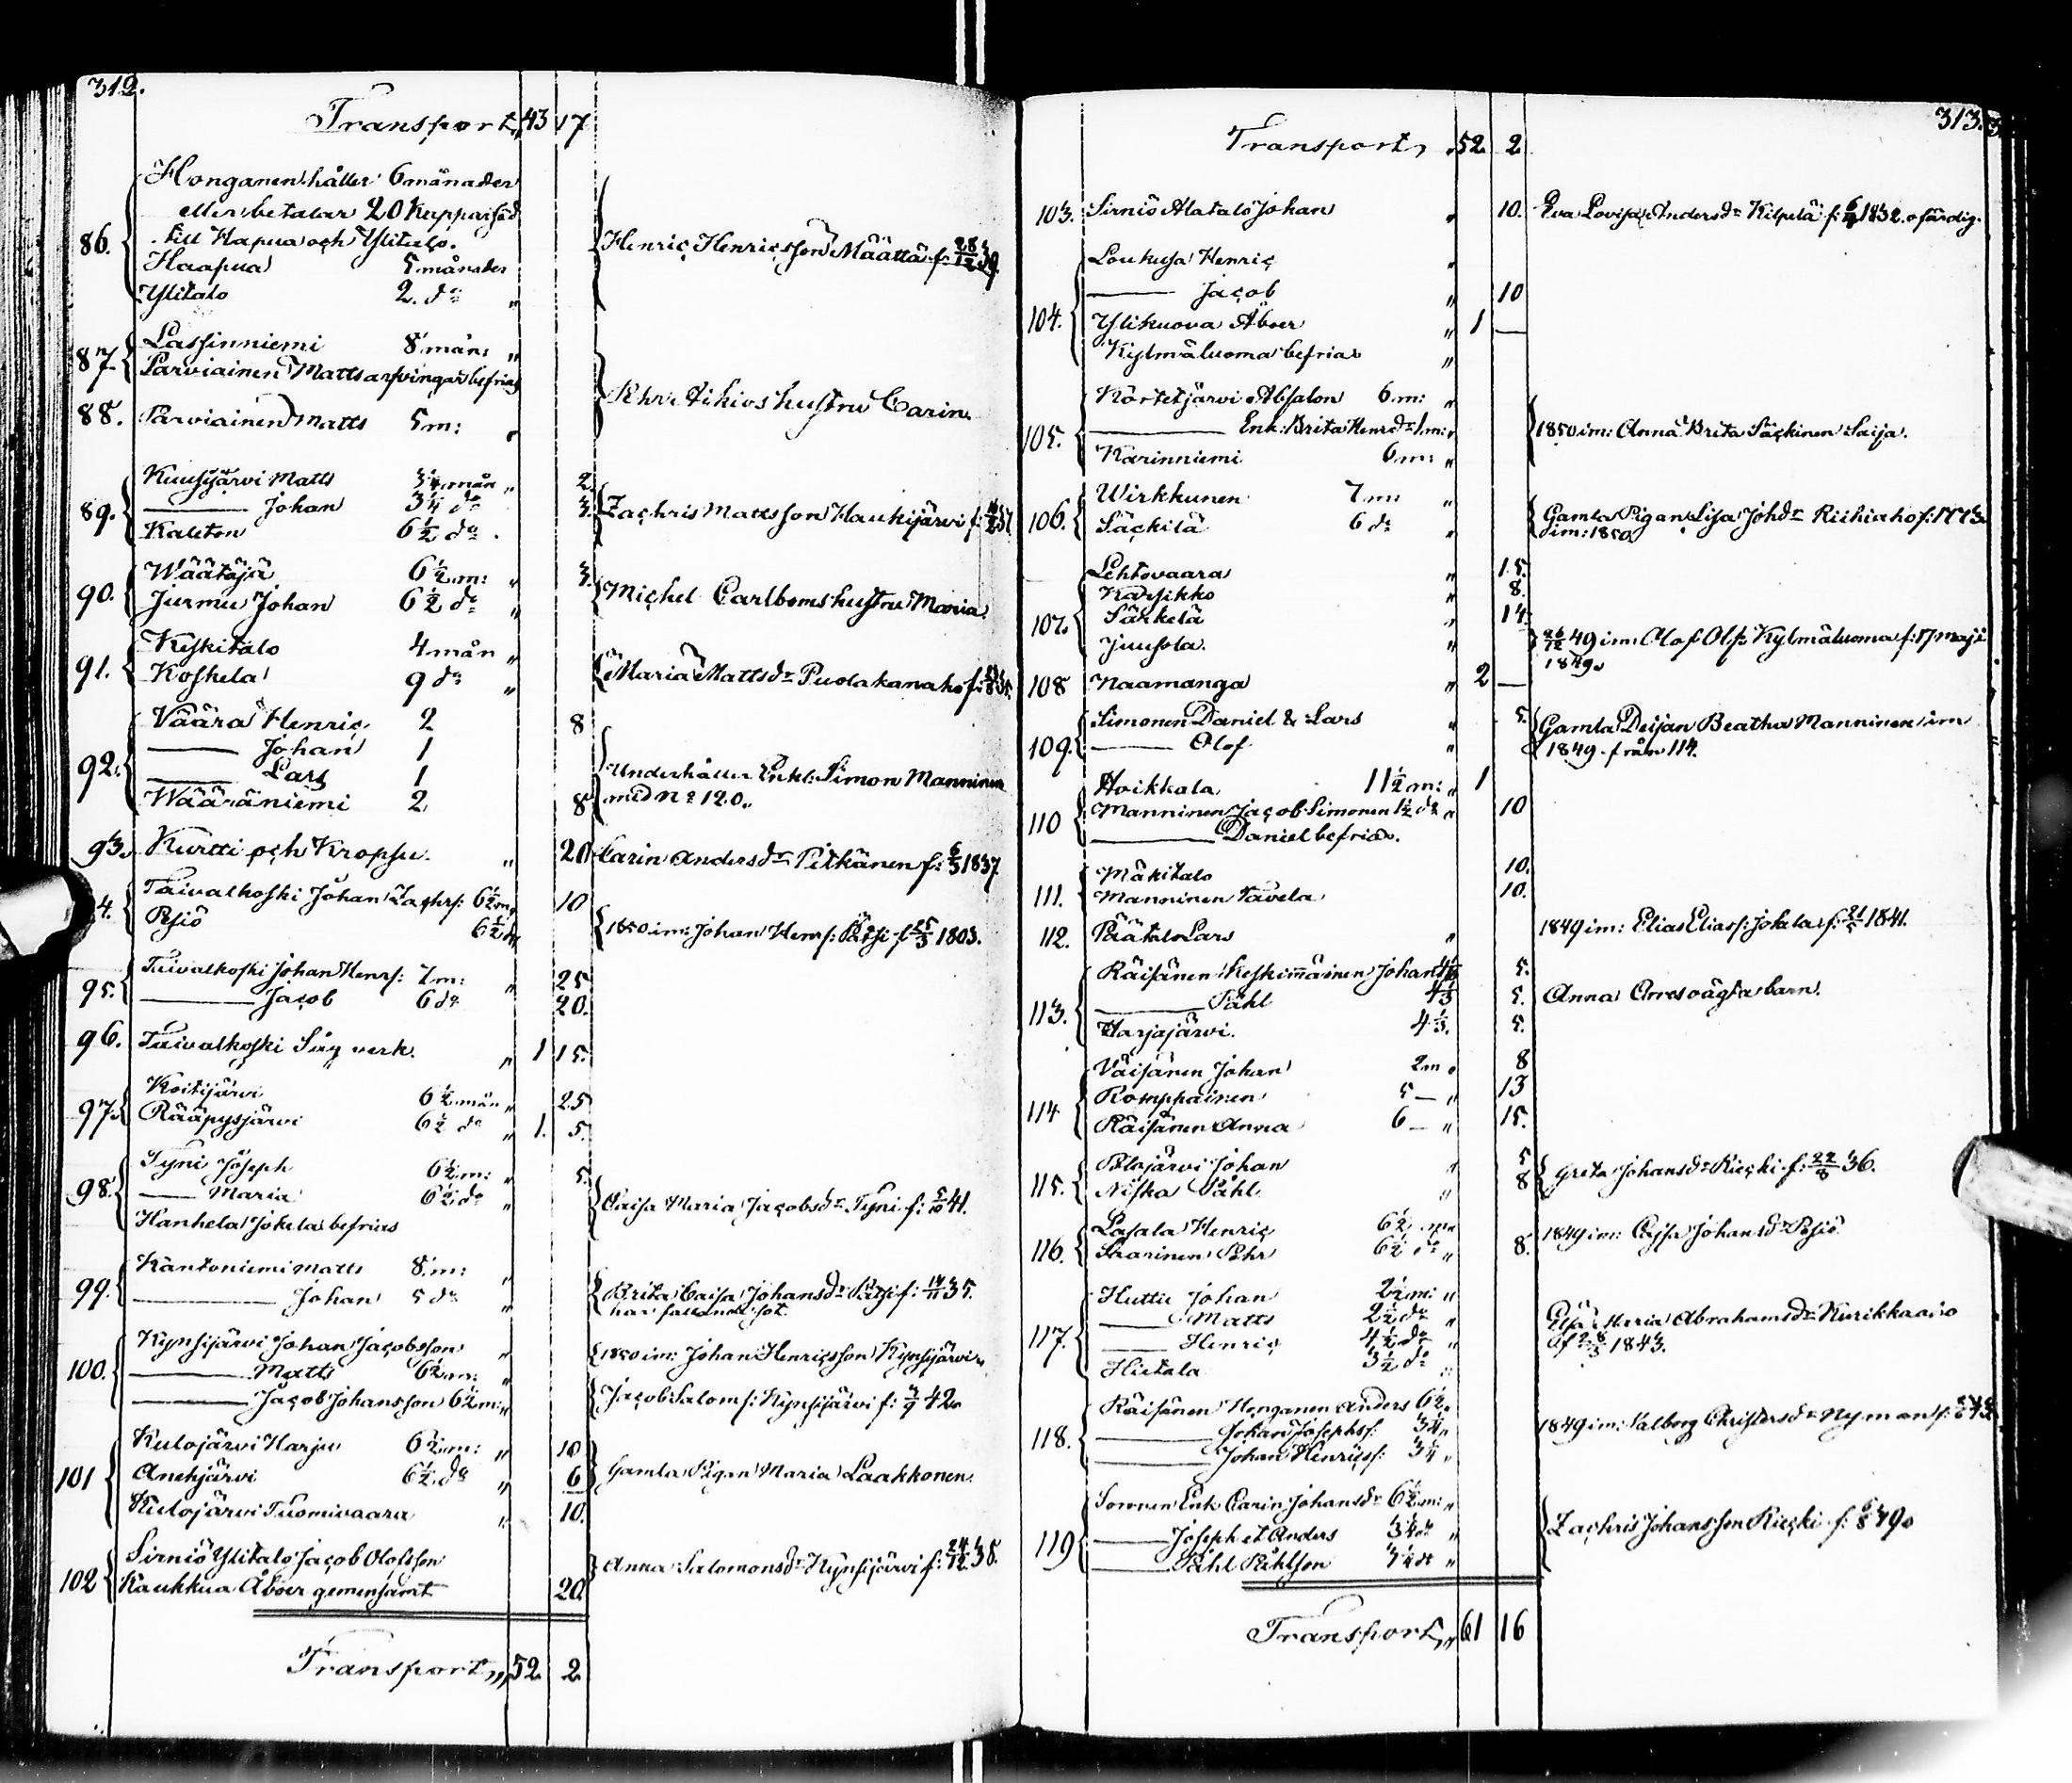 312.
Transport, 43 17
86. Honganen håller 6 månader
eller betalar 20 kappar säd
till Hapua och Ylitalo.
Haapua 5 månader
Ylitalo 2. do „
Henric Henricsson Määttä f: 28/12 39.
87. Lassinniemi 8 mån: „
Parviainen Matts arfvingar befrias
88. Parviainen Matts 5 m: „
hustru Carin
89. Kuusijärvi Matts 3¼ mån „ 2.
——— Johan 3¼ do 3.
Kaleton 6½ do
Zachris Mattsson Haukijärvi f:
90. Wäätäjä 6½ m: „ 3.
Jurmu Johan 6½ do „
Michel Carlboms hustru Maria
91. Keskitalo 4 mån „
Koskela 9 do „
Maria Mattsdr Puolakanaho f:
92. Väära Henric 2 8
——— Johan 1
——— Lars 1
Wääräniemi 2 8
Underhåller Enkl: Simon Manninen
med No 120.
93. Kurtti och Kropsu „ 20
Carin Andersdr Pitkänen f: 6/3 1837
4. Taivalkoski Johan Zachrs: 6½ m „ 10
Posiö 6½ do
1850 im: Johan Henrs: Pätsi f 25/3 1803.
95. Taivalkoski Johan Henrs: 7 m: „ 25
——— Jacob 6 do 20.
96. Taivalkoski Såg verk. „ 1 15.
97. Koitijärvi 6½ mån „ 25
Rääpysjärvi 6½ do „ 1. 5.
98. Tyni Joseph 6½ m: „ 5.
——— Maria 6½ do „
Hanhela Jokela befrias
Caisa Maria Jacobsdr Tyni f: 5/10 41.
99. Kantoniemi Matts 8 m: „
——— Johan 5 do „
Brita Caisa Johansdr Pätsi f: 14/11 35.
har fallande sot.
100. Kynsijärvi Johan Jacobsson „
——— Matts 6½ m: „
——— Jacob Johansson 6½ m: „
1850 im: Johan Henricsson Kynsijärvi
Jacob Saloms: Kynsijärvi f: 42.
101 Kulojärvi Harju 6½ m: „ 10
Anehjärvi 6½ do „ 6
Kulojärvi Tuomivaara „ 10.
Gamla Pigan Maria Laakkonen.
102 Sirniö Ylitalo Jacob Olofsson
Raukkua Åboer gemensamt 20.
Anna Salomonsdr Kynsijärvi f: 24/12 38.
Transport „ 52. 2.
313.
Transport, „ 52 2
103. Sirniö Alatalo Johan „ 10.
Eva Lovisa Andersdr Kilpelä f: 1832. ofärdig.
104. Loukusa Henric „
——— Jacob „ 10
Ylikuova Åboer „ 1 —
Kylmäluoma befrias „
105. Körtetjärvi Absalon 6 m: „
——— Enk: Brita Henrsdr 1 m: „
Karinniemi 6 m: „
1850 im: Anna Brita Säckinen Saija.
106. Wirkkunen 7 m: „
Säckilä 6 do „
Gamla Pigan Lisa Johdr Riihiaho f: 1773.
im: 1850
107. Lehtovaara „ 15.
Karsikko „ 8.
Särkelä „ 14.
Juusola. „
26/12 49 im: Olof Olfs: Kylmäluoma f: 17 maji
1849.
108 Naamanga „ 2 —
109. Simonen Daniel & Lars „ 5.
——— Olof „
Gamla Deijan Beatha Manninen im
1849 från 114.
110 Hoikkala 11½ m: „ 1
Manninen Jacob Simonen 1½ do „ 10
——— Daniel befrias.
111. Mäkitalo 10.
Manninen Tavela 10.
112. Päätalo Lars „
1849 im: Elias Eliass: Jokela f: 21/5 1841.
113. Räisänen Keskimäinen Johan 4⅓ 5.
——— Påhl 4⅓ 5.
Harjajärvi. 4⅓. 5.
Anna Orresvägta barn.
114 Väisänen Johan 2 m „ 8
Romppainen 5 — „ 13
Räisänen Anna 6 — „ 15.
115. Polojärvi Johan „ 5
Niska Påhl „ 8
Greta Johansdr Riecki f: 22/8 36.
116. Lasala Henric 6½ m „
Saarinen Pehr 6½ do „ 8.
1849 im: Cajsa Johansdr Posiö
117. Huttu Johan 2½ m: „
——— Matts 2½ do „
——— Henric 4½ do „
Hietala 3½ do „
Elsa Maria Abrahamsdr Kurikkaaho
f 28/3 1843.
118. Räisänen Honganen Anders 6½ „
——— Johan Josephss: 3¼ „
——— Johan Henricss: 3¼ „
1849 im: Valborg Christersdr Nyman f:
119 Sorvun Enk Carin Johansdr 6½ m: „
——— Joseph et Anders 3¼ do „
——— Påhl Påhlson 3¼ do „
Zachris Johansson Riecki f: 49.
Transport, „ 61 16